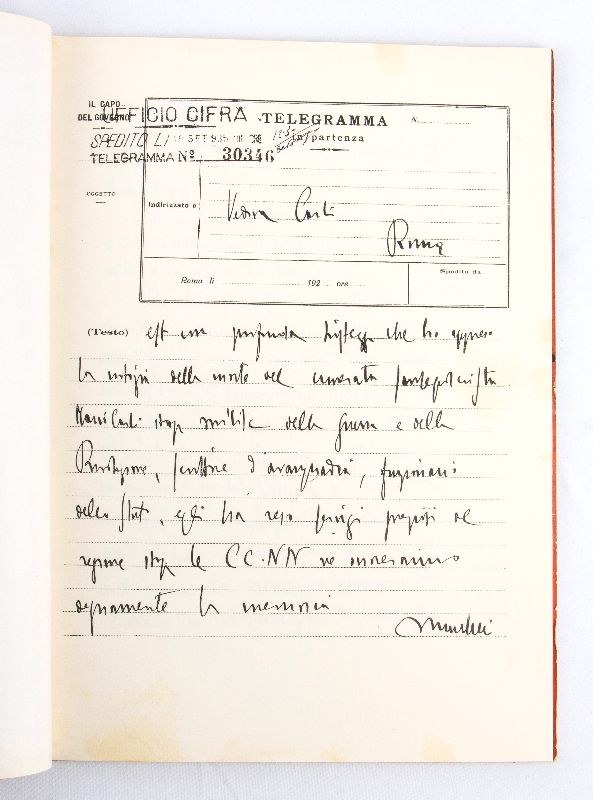 IL CAPO
DEL GOVERNO
UFFICIO CIFRA
TELEGRAMMA
A
SPEDITO LI SET 935
in partenza
TELEGRAMMA Nº 30346
OGGETTO
Indirizzato a
Vedova Carli
Roma
Roma lì 192 ore
Spedito da
(Testo) est con profonda che ho appreso
la notizia della morte del camerata
Mario Carli stop milite della guerra e della
Rivoluzione, scrittore d'avanguardia, funzionario
dello Stato, egli ha reso servigi preziosi al
regime stop le CC.NN ne onoreranno
degnamente la memoria
Mussolini